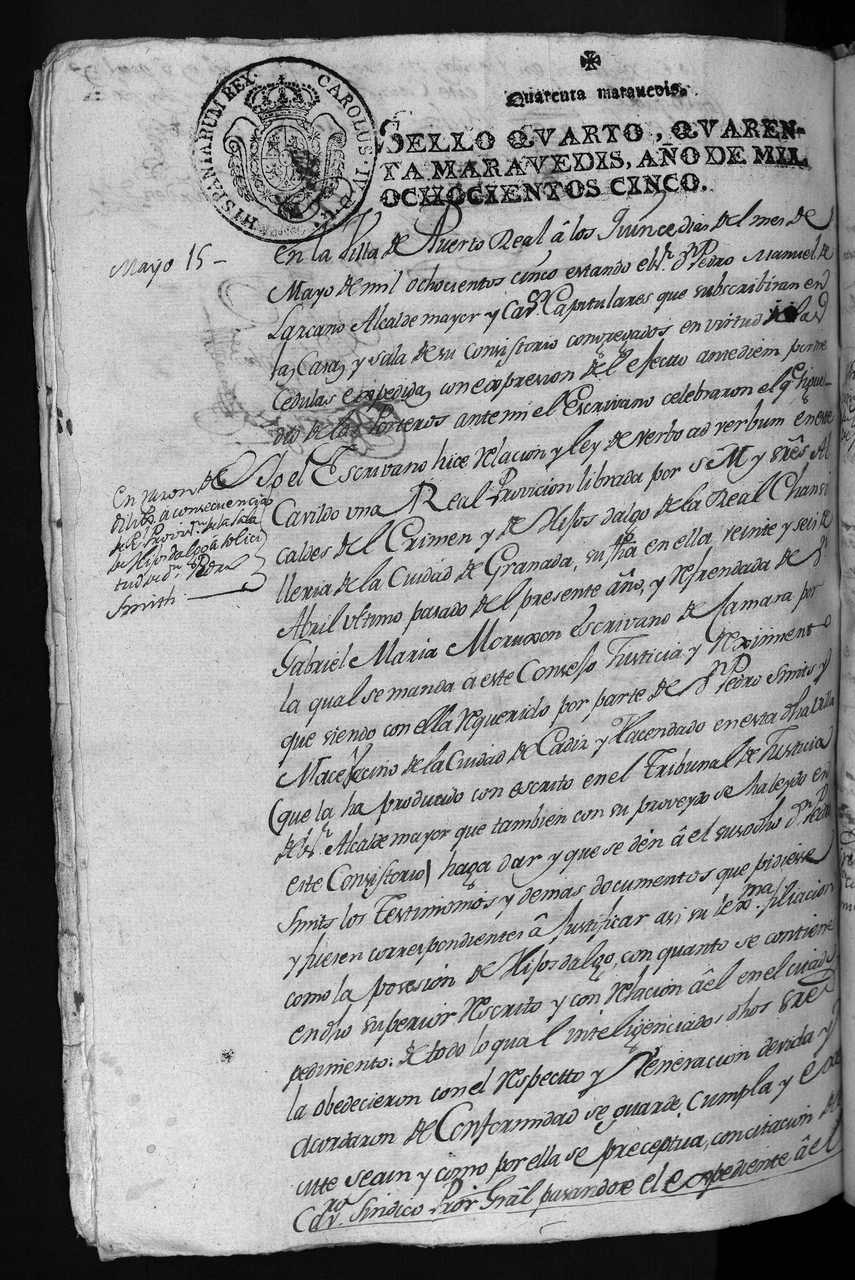 ✠
Quarenta maravedis.
SELLO QVARTO, QVAREN-
TA MARAVEDIS, AÑO DE MIL
OCHOCIENTOS CINCO.
HISPANIARUM REX. CAROLUS. IV. D. G.
Mayo 15 –
En la Villa de Puerto Real â los Quince dias del mes de
Mayo de mil ochocientos cinco estando el Sr. Dn. Pedro Manuel de
Lazcano Alcalde mayor y Cavs. Capitulares que subscribiran en
las Casas y sala de su Consistorio congregados en virtud de las
Cedulas expedidas con expresion del efecto antediem por me
dio de los Porteros ante mi el Escrivano celebraron el qe. sigue –
En razon de
dilixs. a consecuencia
de Rl. Provisn. de la Sala
de Hijosdalgo â solici
tud de Dn. Pedro
Smith.
Yo el Escrivano hice relacion y ley de verbo ad verbum en este
Cavildo una Real Provicion librada por S M y Sres Al
caldes del Crimen y de Hijosdalgo de la Real Chansi
lleria de la Cuidad de Granada, su fha en ella veinte y seis de
Abril ultimo pasado del presente año, y refrendada de Dn
Gabriel Maria Moruson Escrivano de Camara por
la qual se manda a este Consejo Justicia y reximiento
que siendo con ella requerido por parte de Dn Pedro Smits y
Mace, vecino de la Cuidad de Cadiz y Hacendado en esta dha Villa
(que la ha producido con escrito en el Tribunal de Justicia
del Sr. Alcalde mayor que tambien con su proveydo se ha leydo en
este Consistorio) haga dar y que se dén â el susodho Dn. Pedro
Smits los Testimonios y demas documentos que pidiese
y fuesen correspondientes â Justificar asi su lexma. filiacion
como la posesion de Hijosdalgo, con quanto se contiene
en dho superior rescrito y con relacion âel en el citado
pedimento: de todo lo qual inteligenciados dhos Sres
la obedecieron con el respecto y veneracion devida y
acordaron de Conformidad se guarde, Cumpla y Exe
cute segun y como por ella se preceptua, con citacion del
Cavro. Sindico Pror Gral pasandose el expediente â el